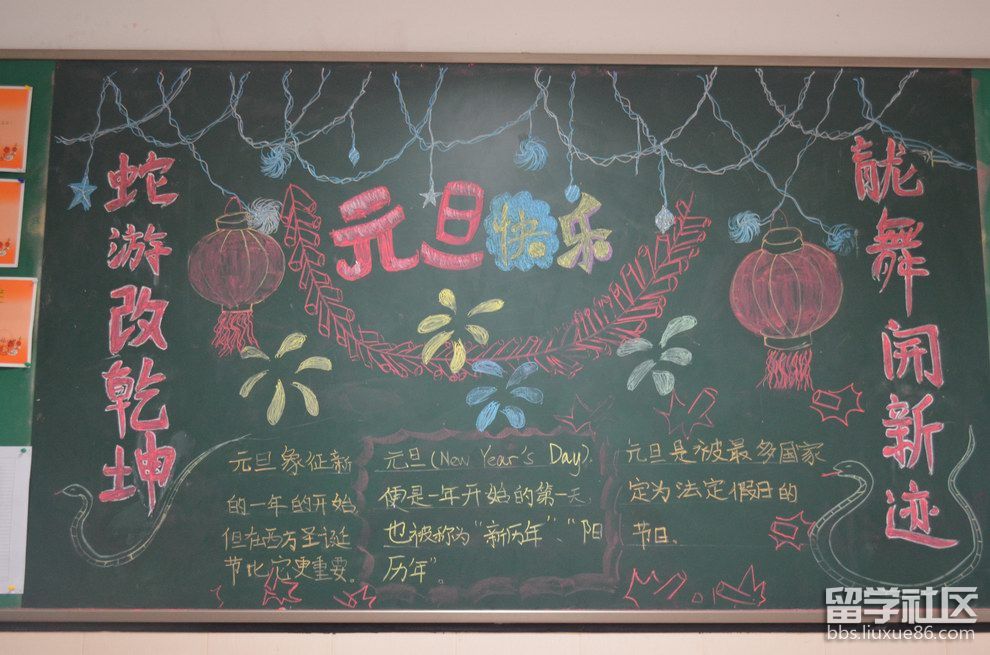 元旦快乐
龍舞开新迹
蛇游改乾坤
元旦象征新
的一年的开始,
但在西方圣诞
节比它更重要。
元旦(New Year's Day),
便是一年开始的第一天,
也被称为“新历年”、“阳
历年”。
元旦是被最多国家
定为法定假日的
节日。
留学社区
bbs.liuxue86.com